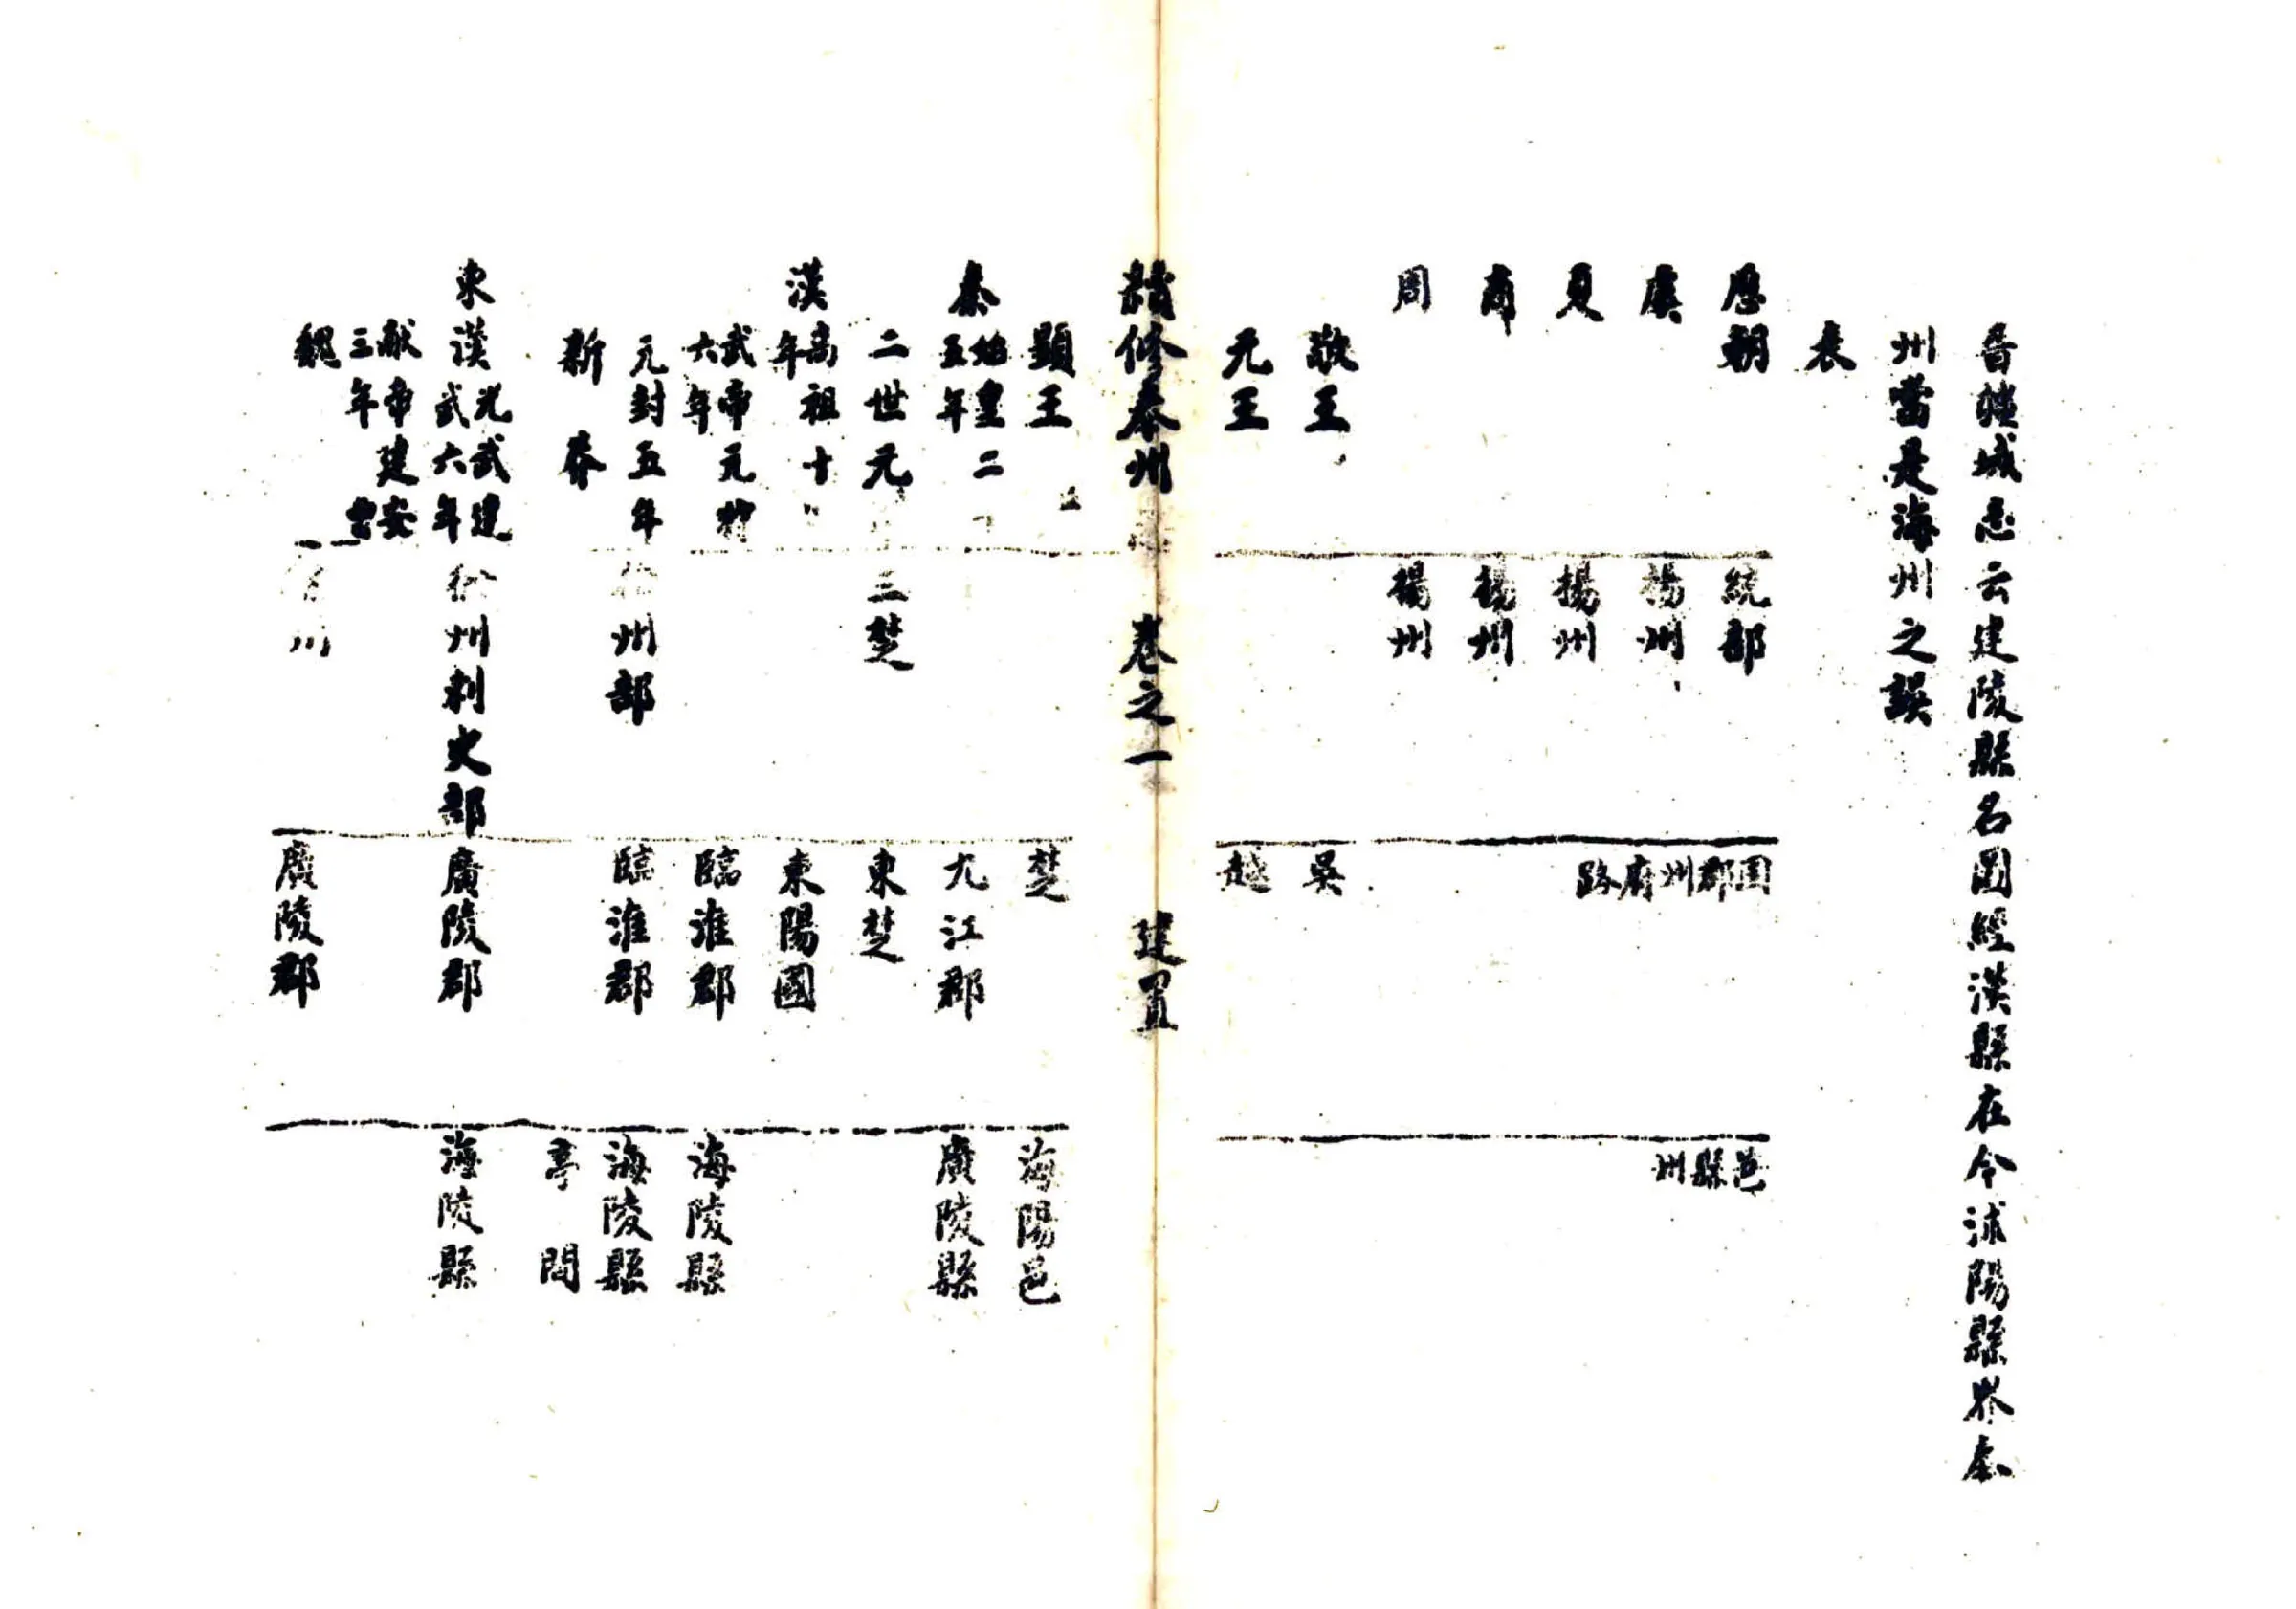 晉疆域志云建陵縣名圖經漢縣在今沭陽縣界泰
州當是海州之誤
表
歷朝 統部 國郡州府路 邑縣州
虞 揚州
夏 揚州
商 揚州
周 揚州
敬王 吳
元王 越
續修泰州 卷之一 建置
顯王 楚 海陽邑
秦 始皇二 五年 九江郡 廣陵縣
二世元 三楚 東楚
漢 高祖十 年 東陽國
武帝元狩 六年 臨淮郡 海陵縣
元封五年 州部 臨淮郡 海陵縣
新莽 亭間
東漢 光武建 武六年 徐州刺史部 廣陵郡 海陵縣
獻帝建安 三年
魏 州 廣陵郡